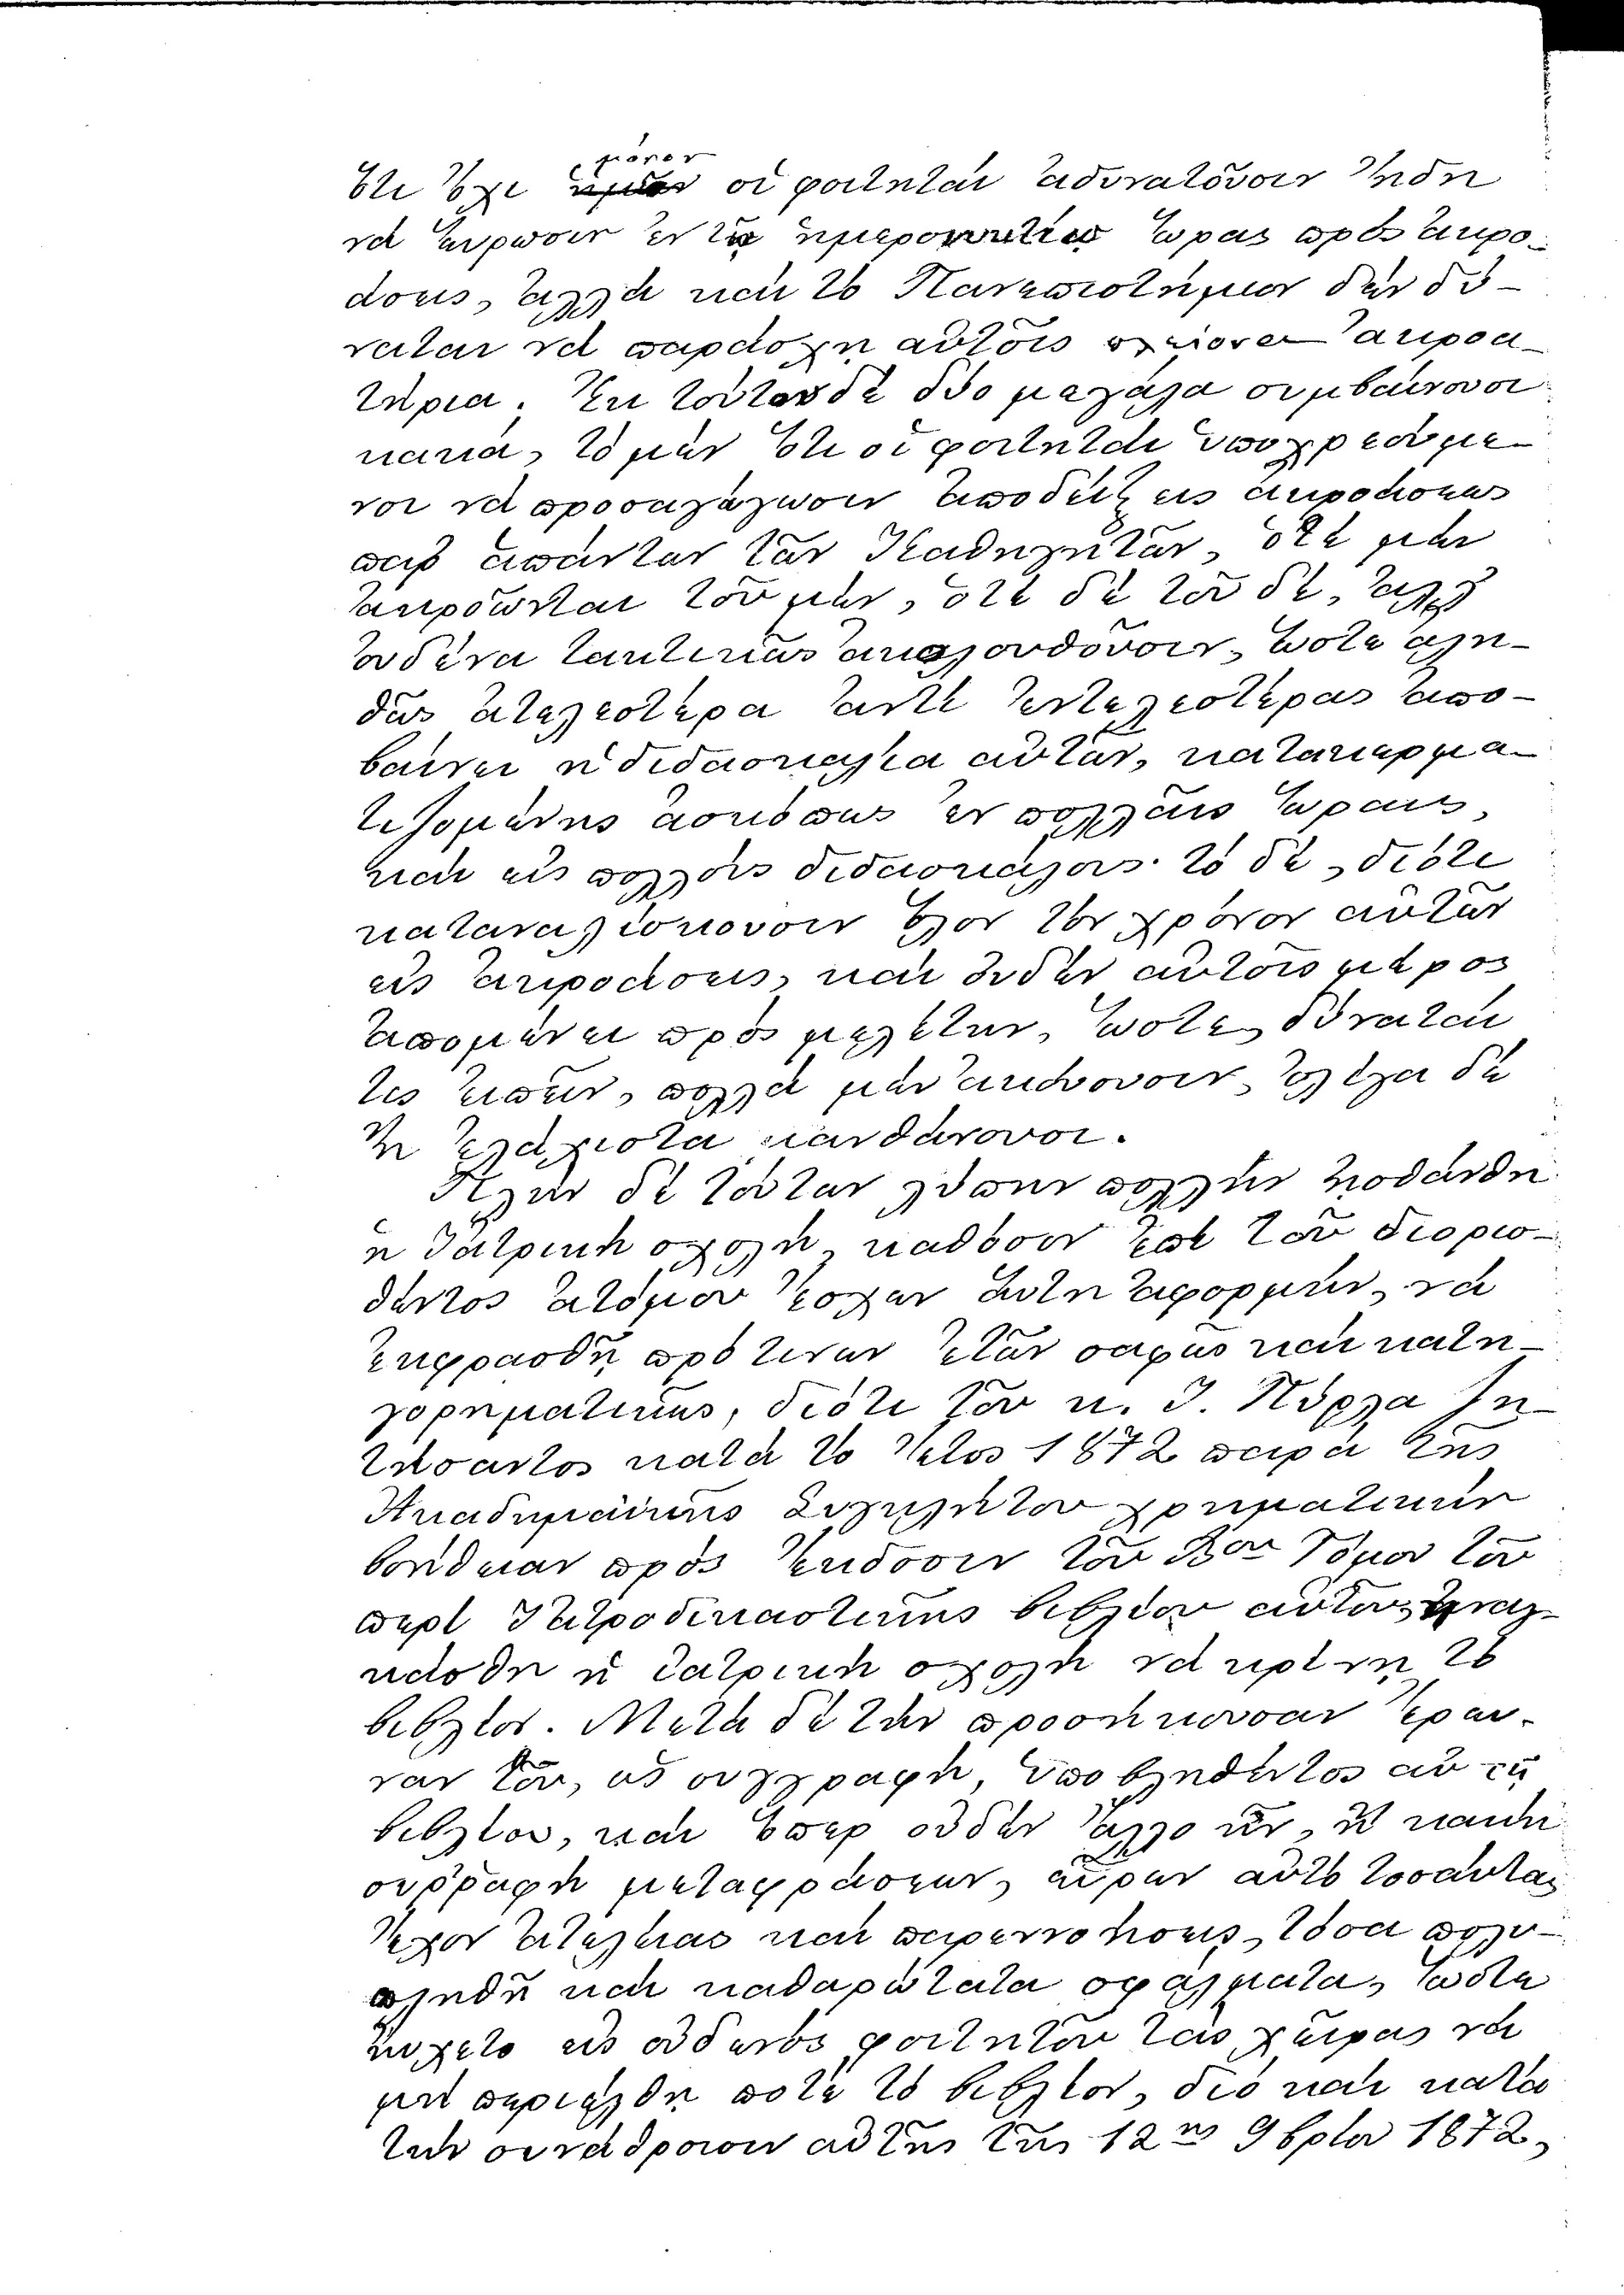 μόνον
ὅτι ὄχι οἱ φοιτηταὶ ἀδυνατοῦσιν ἤδη
νὰ εὕρωσιν ἐν τῷ ἡμερονυκτίῳ ὥρας πρὸς ἀκρο-
άσεις, ἀλλὰ καὶ τὸ Πανεπιστήμιον δὲν δύ-
ναται νὰ παράσχῃ αὐτοῖς πλείονα ἀκροα-
τήρια. Ἐκ τούτου δὲ δύο μεγάλα συμβαίνουσι
κακά, τὸ μὲν ὅτι οἱ φοιτηταὶ ὑποχρεούμε-
νοι νὰ προσαγάγωσιν ἀποδείξεις ἀκροάσεως
παρ' ἁπάντων τῶν Καθηγητῶν, ὁτὲ μὲν
ἀκροῶνται τοῦ μὲν, ὁτὲ δὲ τοῦ δὲ, ἀλλ'
οὐδένα τακτικῶς ἀκολουθοῦσιν, ὥστε ἀλη-
θῶς ἀτελεστέρα ἀντὶ ἐντελεστέρας ἀπο-
βαίνει ἡ διδασκαλία αὐτῶν, κατακερμα-
τιζομένης ἀσκόπως ἐν πολλαῖς ὥραις,
καὶ εἰς πολλοὺς διδασκάλους· τὸ δὲ, διότι
καταναλίσκουσιν ὅλον τὸν χρόνον αὐτῶν
εἰς ἀκροάσεις, καὶ οὐδὲν αὐτοῖς μέρος
ἀπομένει πρὸς μελέτην, ὥστε, δύναταί
τις εἰπεῖν, πολλὰ μὲν ἀκούουσιν, ὀλίγα δὲ
ἢ ἐλάχιστα μανθάνουσι.
Πλὴν δὲ τούτων λύπην πολλὴν ᾐσθάνθη
ἡ Ἰατρικὴ σχολὴ, καθόσον ἐπὶ τοῦ διορισ-
θέντος ἀτόμου ἔσχεν αὕτη ἀφορμὴν, νὰ
ἐκφρασθῇ πρό τινων ἐτῶν σαφῶς καὶ κατη-
γορηματικῶς, διότι τοῦ κ. Ἰ. Πύρλα ζη-
τήσαντος κατὰ τὸ ἔτος 1872 παρὰ τῆς
Ἀκαδημαϊκῆς Συγκλήτου χρηματικὴν
βοήθειαν πρὸς ἔκδοσιν τοῦ Βου Τόμου τοῦ
περὶ Ἰατροδικαστικῆς βιβλίου αὐτοῦ, ἠναγ-
κάσθη ἡ ἰατρικὴ σχολὴ νὰ κρίνῃ τὸ
βιβλίον. Μετὰ δὲ τὴν προσήκουσαν ἔρευ-
ναν τοῦ, ὡς συγγραφὴ, ὑποβληθέντος αὐτῇ
βιβλίου, καὶ ὅπερ οὐδὲν ἄλλο ἦν, ἢ κακὴ
συῤῥαφὴ μεταφράσεων, εὗρεν αὐτὸ τοσαύτας
ἔχον ἀτελείας καὶ παρεννοήσεις, τόσα πολυ-
πληθῆ καὶ καθαρώτατα σφάλματα, ὥστε
ηὔχετο εἰς οὐδενὸς φοιτητοῦ τὰς χεῖρας νὰ
μὴ περιέλθῃ ποτὲ τὸ βιβλίον, διὸ καὶ κατὰ
τὴν συνέδρασιν αὐτῆς τῆς 12ης 9βρίου 1872,